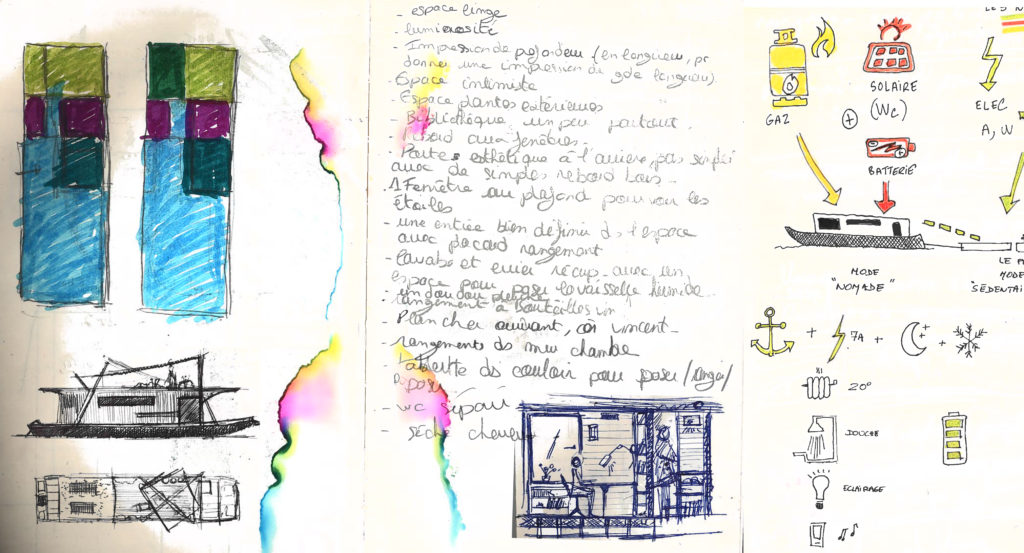 - espace linge
- luminosité
- Impression de profondeur (en longueur, pr
donner une impression de gde longueur)
- Espace intimiste
- Espace plantes extérieures
- Bibliothèque un peu partout.
- rebord aux fenêtres.
- Portes esthétique à l'arrière, pas
avec de simples rebord bois -
- 1 Fenêtre au plafond pour voir les
étoiles
- une entrée bien définie ds l'espace
avec placard rangement
- lavabo et évier récup. avec un
espace pour poser la vaisselle humide
rangement à bouteilles vin
- Plancher ouvrant, cf vincent -
- rangements ds mur chambre
- tablette ds couloir pour poser/ranger/
reposer
- WC séparé
- sèche cheveux
GAZ
SOLAIRE
(Wc)
+
BATTERIE
ELEC
A, W
MODE
"NOMADE"
LE P
MODE
"SÉDENTAI
+ 7A + +
20°
DOUCHE
ECLAIRAGE